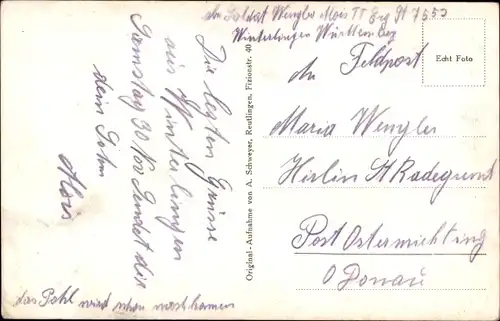 Soldat Wengler Alois
Winterlingen Württembg
Feldpost
Echt Foto
Maria Wengler
St Radegund
Post Ostermiething
O Donau
Original-Aufnahme von A. Schweyer, Reutlingen, Fizionstr. 40
Die letzten Grüsse
aus Winterlingen
Samstag 30 Nov Sendet dir
dein Sohn
Alois
das Pakl wird schon nachkommen